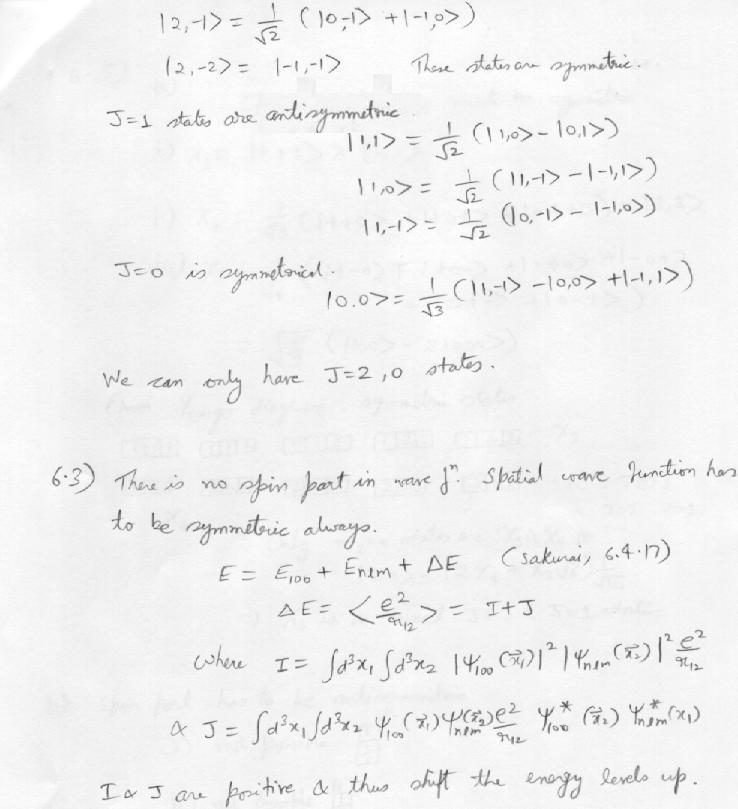 |2,-1> = 1/√2 (|0,-1> + |-1,0>)
|2,-2> = |-1,-1> These states are symmetric.
J=1 states are antisymmetric
|1,1> = 1/√2 (|1,0> - |0,1>)
|1,0> = 1/√2 (|1,-1> - |-1,1>)
|1,-1> = 1/√2 (|0,-1> - |-1,0>)
J=0 is symmetrical.
|0.0> = 1/√3 (|1,-1> - |0,0> + |-1,1>)
We can only have J=2,0 states.
6.3) There is no spin part in wave fⁿ. Spatial wave function has
to be symmetric always.
E = E₁₀₀ + Eₙₗₘ + ΔE (sakurai, 6.4.17)
ΔE = <e²/r₁₂> = I+J
where I = ∫d³x₁ ∫d³x₂ |ψ₁₀₀(x⃗₁)|² |ψₙₗₘ(x⃗₂)|² e²/r₁₂
& J = ∫d³x₁ ∫d³x₂ ψ₁₀₀(x⃗₁) ψₙₗₘ(x⃗₂) e²/r₁₂ ψ*₁₀₀(x⃗₂) ψ*ₙₗₘ(x₁)
I & J are positive & thus shift the energy levels up.